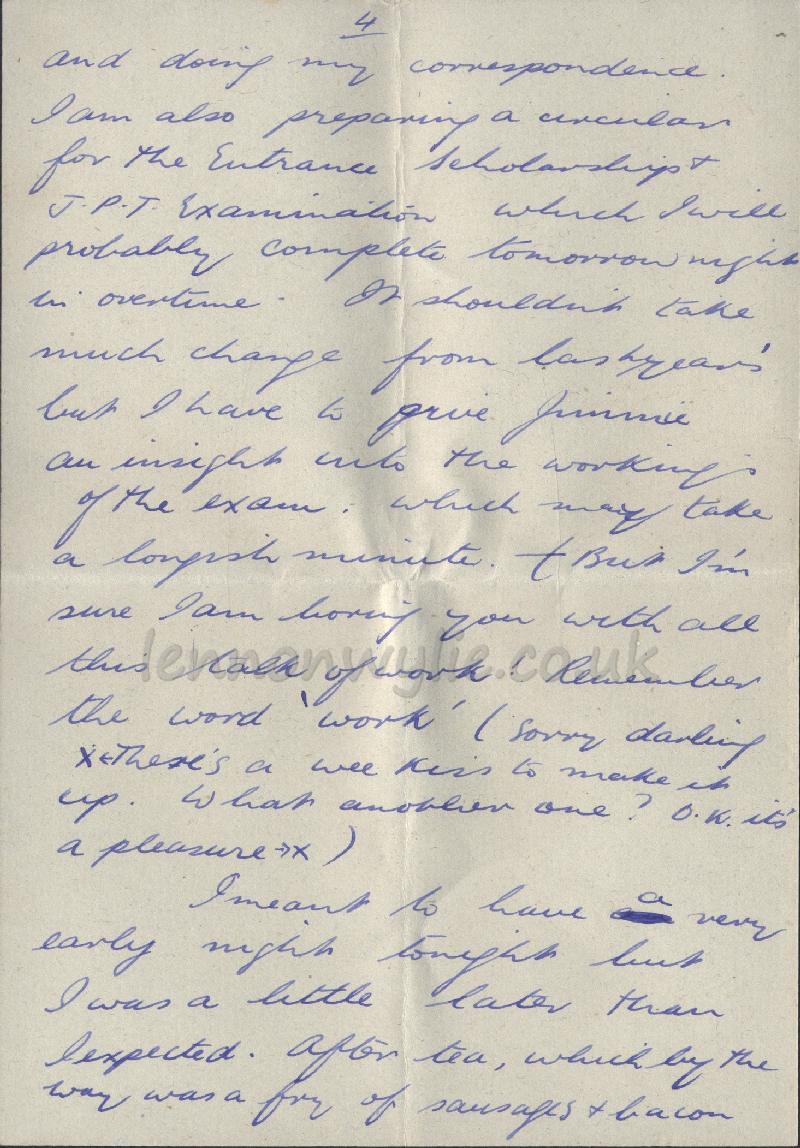 4
and doing my correspondence.
I am also preparing a circular
for the Entrance Scholarship +
J.P.T. Examination which I will
probably complete tomorrow night
in overtime. It shouldn't take
much change from last year's
but I have to give Jimmie
an insight into the workings
of the exam. which may take
a longish minute. (But I'm
sure I am boring you with all
this talk of work! Remember
the word 'work' (sorry darling
x← There's a wee kiss to make it
up. What another one? O.K. it's
a pleasure → x)
I meant to have a very
early night tonight but
I was a little later than
I expected. After tea, which by the
way was a fry of sausages + bacon
lennonwylie.co.uk